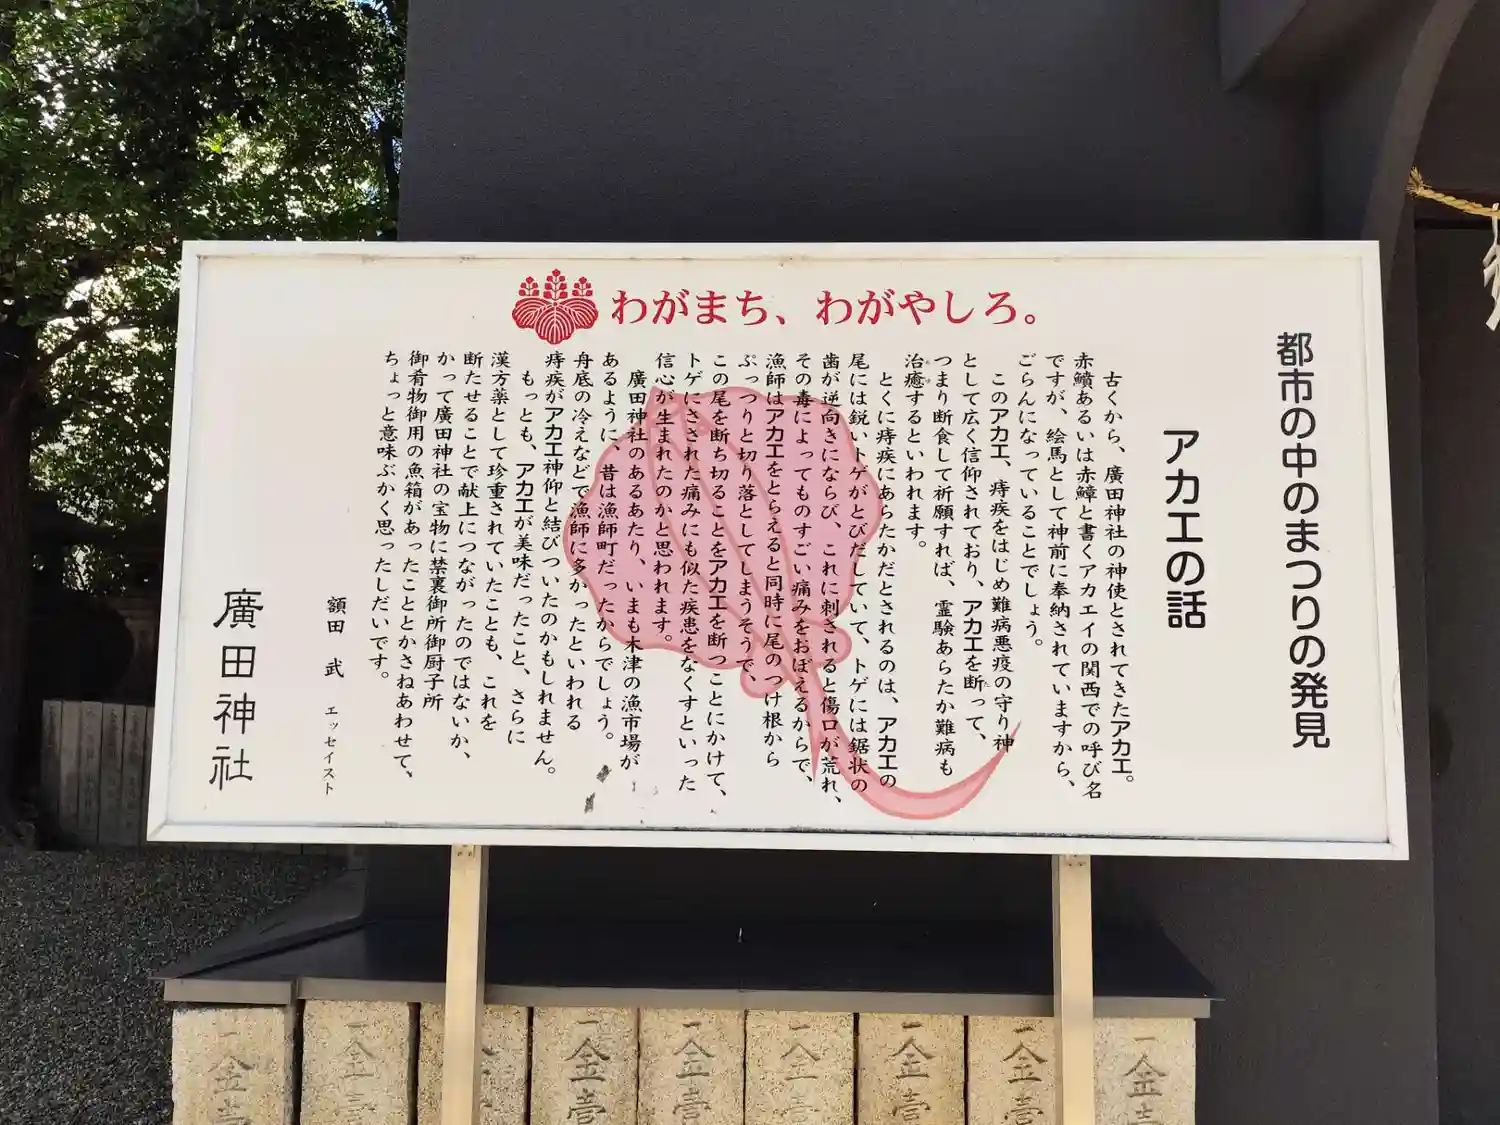 わがまち、わがやしろ。
都市の中のまつりの発見
アカエの話
古くから、廣田神社の神使とされてきたアカエ。
赤鱝あるいは赤鱏と書くアカエイの関西での呼び名
ですが、絵馬として神前に奉納されていますから、
ごらんになっていることでしょう。
このアカエ、痔疾をはじめ難病悪疫の守り神
として広く信仰されており、アカエを断って、
つまり断食して祈願すれば、霊験あらたか難病も
治癒するといわれます。
とくに痔疾にあらたかだとされるのは、アカエの
尾には鋭いトゲがとびだしていて、トゲには鋸状の
歯が逆向きにならび、これに刺されると傷口が荒れ、
その毒によってものすごい痛みをおぼえるからで、
漁師はアカエをとらえると同時に尾のつけ根から
ぷっつりと切り落としてしまうそうで、
この尾を断ち切ることをアカエを断つことにかけて、
トゲにさされた痛みにも似た疾患をなくすといった
信心が生まれたのかと思われます。
廣田神社のあるあたり、いまも木津の漁市場が
あるように、昔は漁師町だったからでしょう。
舟底の冷えなどで漁師に多かったといわれる
痔疾がアカエ神仰と結びついたのかもしれません。
もっとも、アカエが美味だったこと、さらに
漢方薬として珍重されていたことも、これを
断たせることで献上につながったのではないか、
かって廣田神社の宝物に禁裏御所御厨子所
御肴物御用の魚箱があったこととかさねあわせて、
ちょっと意味ぶかく思ったしだいです。
額田 武 エッセイスト
廣田神社
一金壹
一金壹
一金壹
一金壹
一金壹
一金壹
一金壹
一金壹